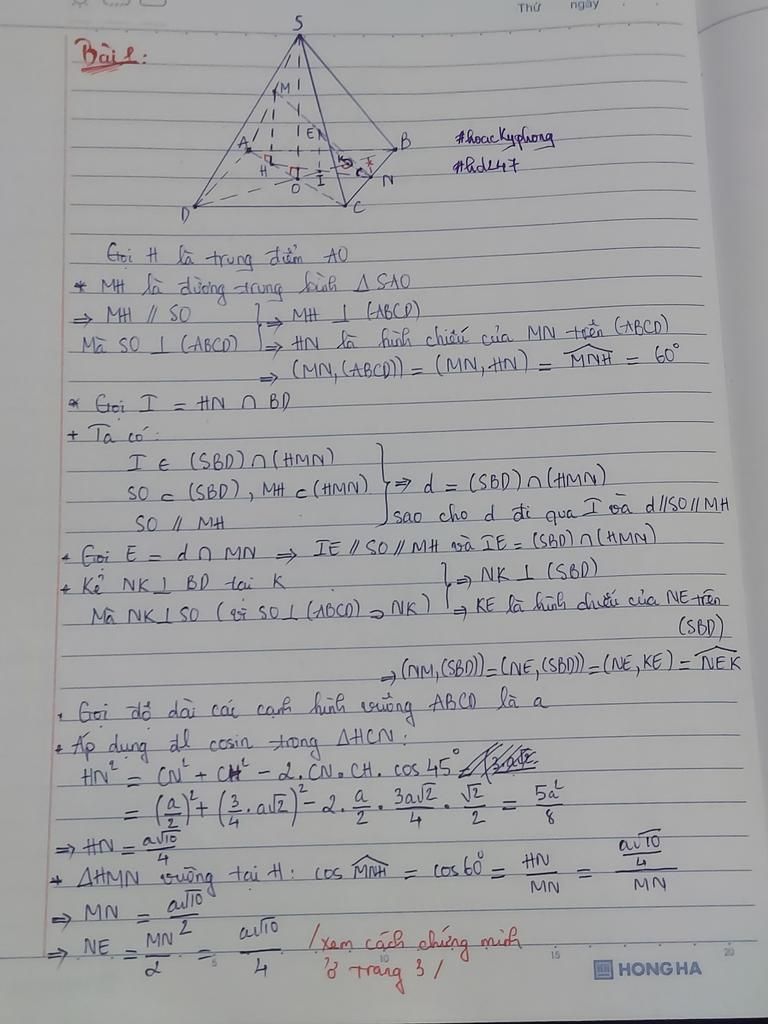 Thứ ngày
Bài 1:
S
M
E
A
B
K
H
O
I
N
D
C
#hoackyphong
#hd247
Gọi H là trung điểm AO
* MH là đường trung bình ΔSAO
⇒ MH // SO
Mà SO ⊥ (ABCD)
⇒ MH ⊥ (ABCD)
⇒ HN là hình chiếu của MN trên (ABCD)
⇒ (MN, (ABCD)) = (MN, HN) = \widehat{MNH} = 60°
* Gọi I = HN ∩ BD
+ Ta có:
I ∈ (SBD) ∩ (HMN)
SO ⊂ (SBD), MH ⊂ (HMN)
SO // MH
⇒ d = (SBD) ∩ (HMN)
sao cho d đi qua I và d // SO // MH
+ Gọi E = d ∩ MN ⇒ IE // SO // MH và IE = (SBD) ∩ (HMN)
+ Kẻ NK ⊥ BD tại K
Mà NK ⊥ SO (vì SO ⊥ (ABCD) ⊃ NK)
⇒ NK ⊥ (SBD)
⇒ KE là hình chiếu của NE trên (SBD)
⇒ (NM, (SBD)) = (NE, (SBD)) = (NE, KE) = \widehat{NEK}
+ Gọi độ dài các cạnh hình vuông ABCD là a
+ Áp dụng đl cosin trong ΔHCN:
HN² = CN² + CH² - 2.CN.CH.cos 45°
= (a/2)² + (3/4 . a√2)² - 2 . a/2 . 3a√2/4 . √2/2 = 5a²/8
⇒ HN = a√10/4
+ ΔHMN vuông tại H: cos \widehat{MNH} = cos 60° = HN/MN = (a√10/4)/MN
⇒ MN = a√10/2
⇒ NE = MN/2 = a√10/4 /xem cách chứng minh
ở trang 3/
5 10 15 20
HONG HA